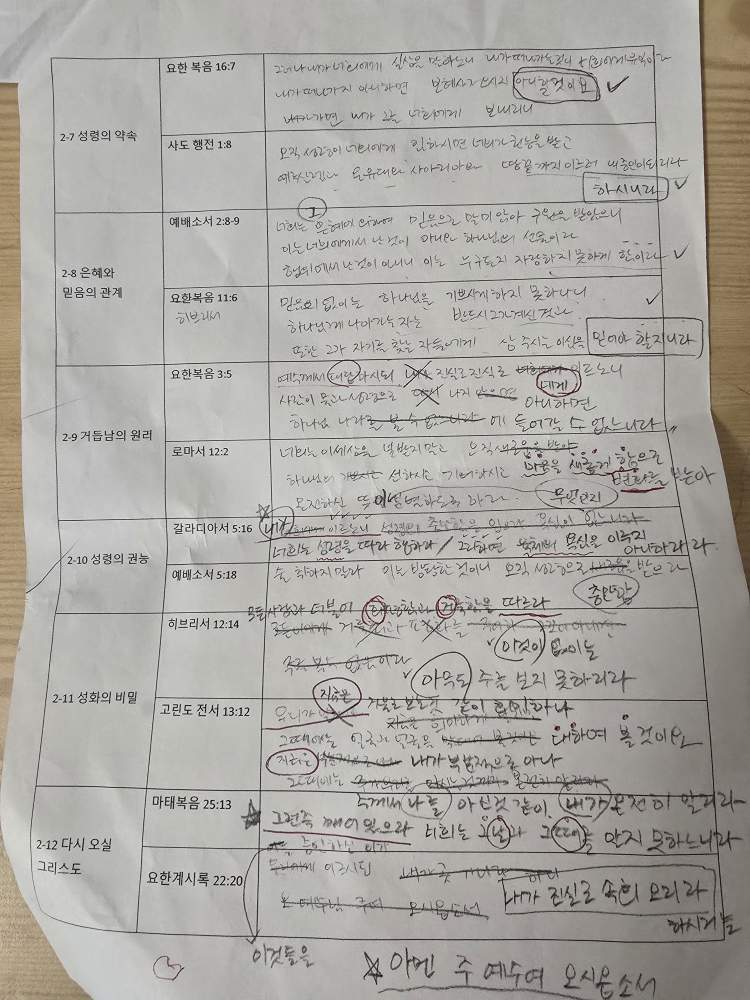 2-7 성령의 약속
요한 복음 16:7
그러나 내가 너희에게 실상을 말하노니 내가 떠나가는 것이 너희에게 유익이라
내가 떠나가지 아니하면 보혜사가 오시지 아니할 것이요
내가 가면 내가 그를 너희에게 보내리니
사도 행전 1:8
오직 성령이 너희에게 임하시면 너희가 권능을 받고
예루살렘과 온유대와 사마리아와 땅끝까지 이르러 내 증인이 되리라
하시니라
2-8 은혜와
믿음의 관계
예배소서 2:8-9
너희는 은혜에 의하여 믿음으로 말미암아 구원을 받았으니
이는 너희에게서 난 것이 아니요 하나님의 선물이라
행위에서 난 것이 아니니 이는 누구든지 자랑하지 못하게 함이라
요한복음 11:6
히브리서
믿음이 없이는 하나님을 기쁘시게 하지 못하나니
하나님께 나아가는 자는 반드시 그가 계신 것과
또한 그가 자기를 찾는 자들에게 상 주시는 이심을 믿어야 할지니라
2-9 거듭남의 원리
요한복음 3:5
예수께서 대답하시되 진실로 진실로 네게 이르노니
사람이 물과 성령으로 나지 아니하면
하나님 나라 에 들어갈 수 없느니라
로마서 12:2
너희는 이 세상을 본받지 말고 오직
마음을 새롭게 함으로
변화를 받아
하나님의 선하시고 기뻐하시고
온전하신 뜻이 무엇인지
분별하도록 하라
2-10 성령의 권능
갈라디아서 5:16
내가 이르노니
너희는 성령을 따라 행하라 / 그리하면 육체의 욕심을 이루지
아니하리라
예베소서 5:18
술 취하지 말라 이는 방탕한 것이니 오직 성령으로 충만함 을 받으라
2-11 성화의 비밀
히브리서 12:14
모든 사람과 더불어 화평함과 거룩함을 따르라
이것이 없이는
아무도 주를 보지 못하리라
고린도 전서 13:12
우리가 지금은 거울로 보는 것 같이 희미하나
그때에는 얼굴과 얼굴을 대하여 볼 것이요
지금은 내가 부분적으로 아나
그때에는
주께서 나를 아신 것 같이 내가 온전히 알리라
2-12 다시 오실
그리스도
마태복음 25:13
그런즉 깨어 있으라 너희는 그날과 그때를 알지 못하느니라
요한계시록 22:20
증언하신 이가
이르시되
내가 진실로 속히 오리라
하시거늘
이것들을
아멘 주 예수여 오시옵소서